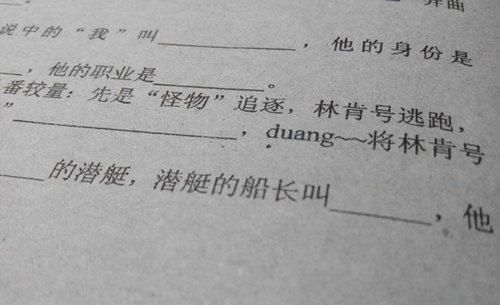 异曲
说中的“我”叫____________，他的身份是
____，他的职业是__________。
番较量：先是“怪物”追逐，林肯号逃跑，
”____________________，duang~~将林肯号
____的潜艇，潜艇的船长叫________，他